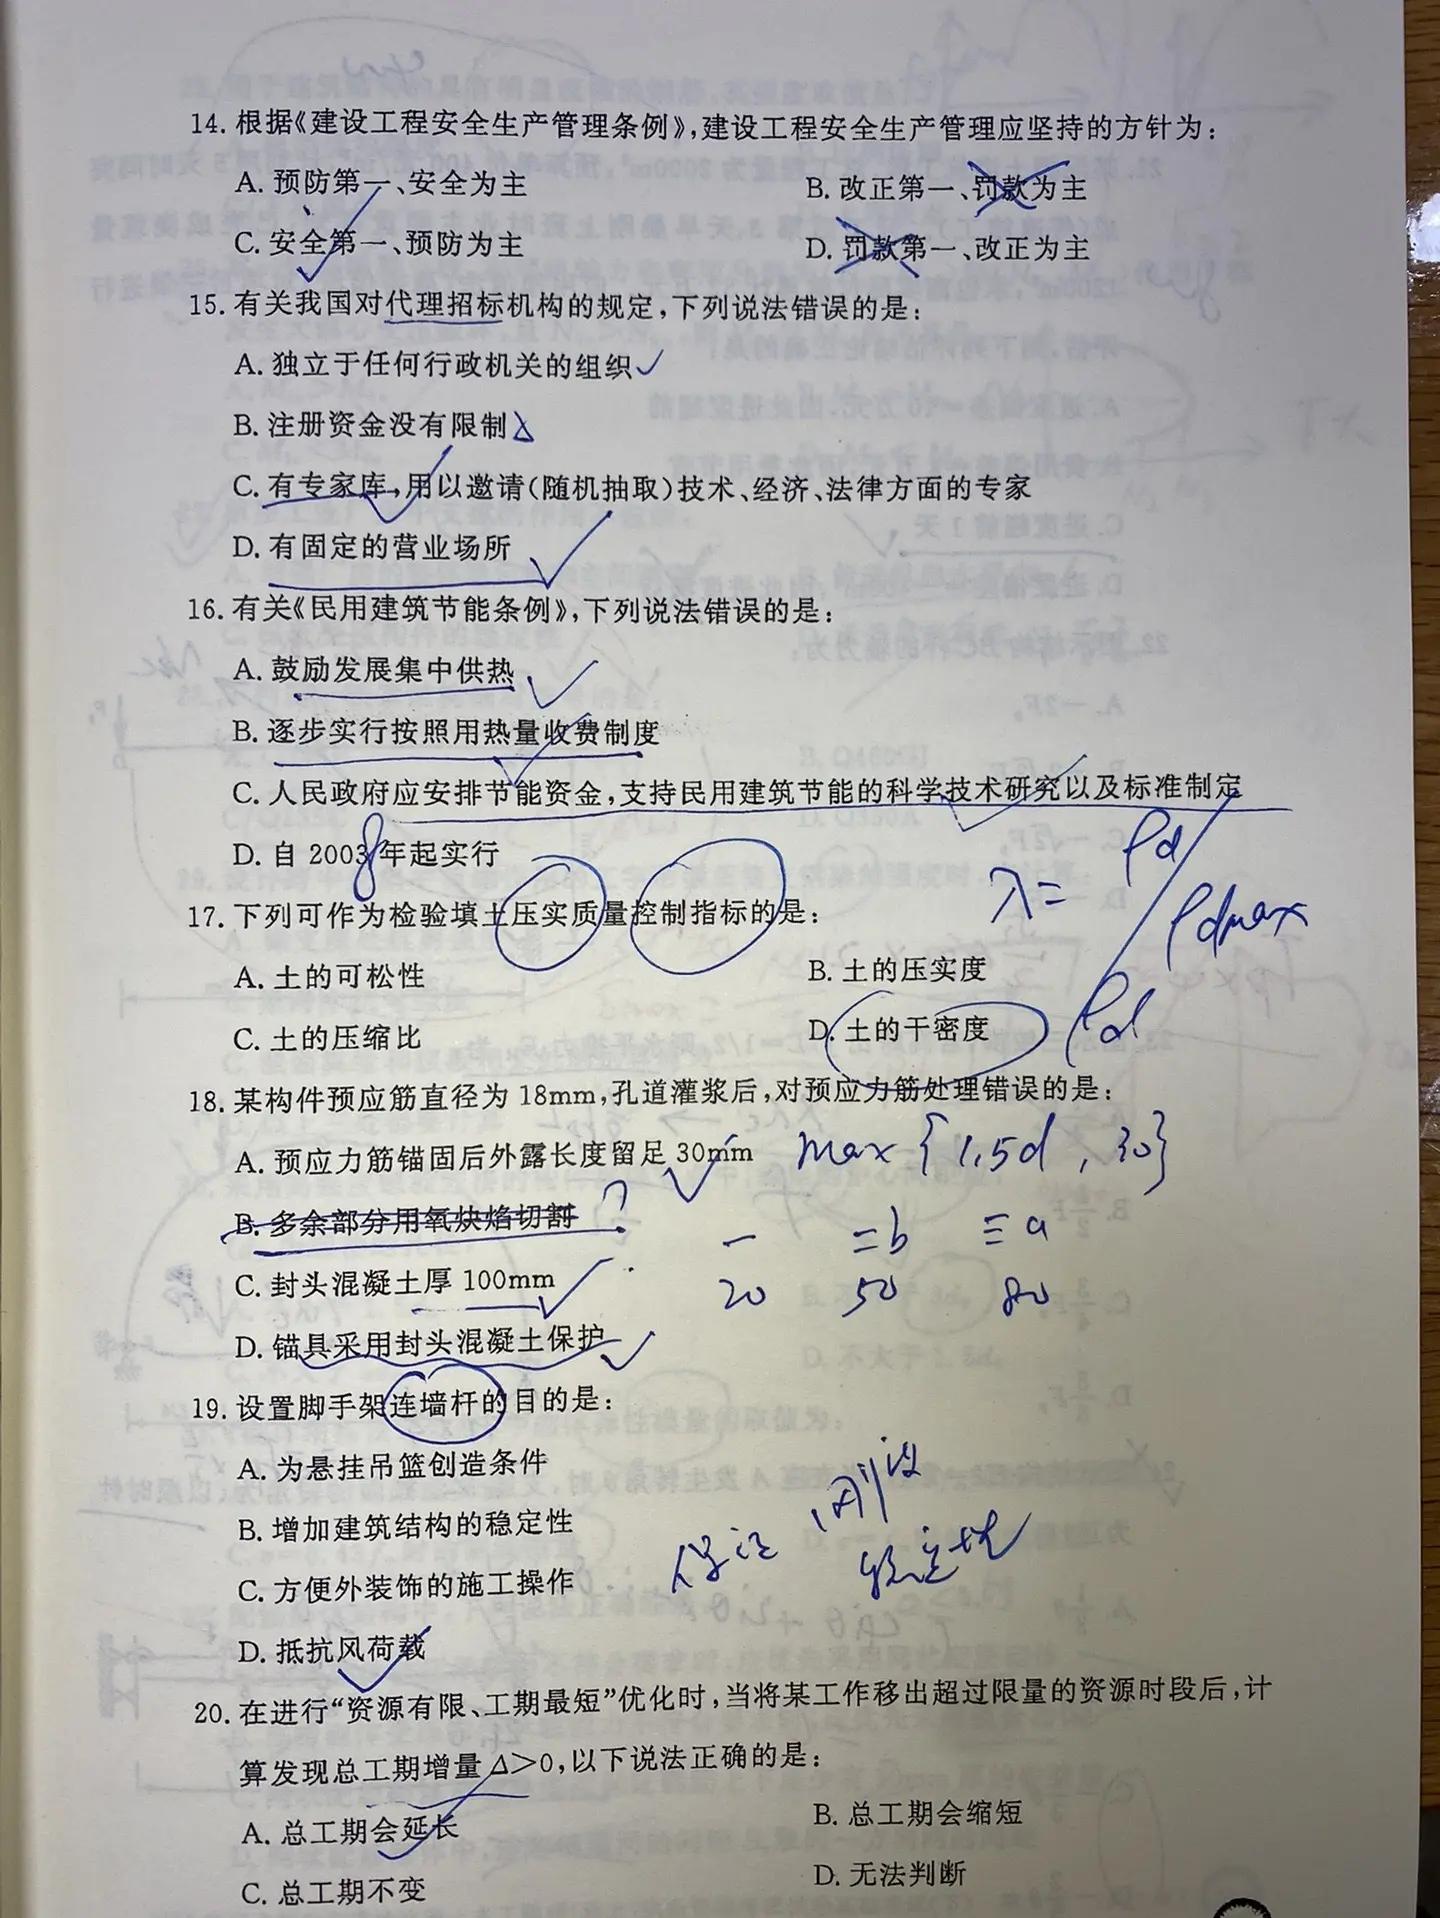 14. 根据《建设工程安全生产管理条例》,建设工程安全生产管理应坚持的方针为:
A. 预防第一、安全为主
B. 改正第一、罚款为主
C. 安全第一、预防为主
D. 罚款第一、改正为主
15. 有关我国对代理招标机构的规定,下列说法错误的是:
A. 独立于任何行政机关的组织
B. 注册资金没有限制
C. 有专家库,用以邀请(随机抽取)技术、经济、法律方面的专家
D. 有固定的营业场所
16. 有关《民用建筑节能条例》,下列说法错误的是:
A. 鼓励发展集中供热
B. 逐步实行按照用热量收费制度
C. 人民政府应安排节能资金,支持民用建筑节能的科学技术研究以及标准制定
D. 自 2003 年起实行
8
λ= ρd/ρdmax
17. 下列可作为检验填土压实质量控制指标的是:
A. 土的可松性
B. 土的压实度
C. 土的压缩比
D. 土的干密度
ρd
18. 某构件预应筋直径为 18mm,孔道灌浆后,对预应力筋处理错误的是:
A. 预应力筋锚固后外露长度留足 30mm
max {1,5d , 30}
B. 多余部分用氧炔焰切割
?
一 二b 三a
C. 封头混凝土厚 100mm
20 50 80
D. 锚具采用封头混凝土保护
19. 设置脚手架连墙杆的目的是:
A. 为悬挂吊篮创造条件
B. 增加建筑结构的稳定性
保证 刚度
稳定性
C. 方便外装饰的施工操作
D. 抵抗风荷载
20. 在进行“资源有限、工期最短”优化时,当将某工作移出超过限量的资源时段后,计
算发现总工期增量 Δ>0,以下说法正确的是:
A. 总工期会延长
B. 总工期会缩短
C. 总工期不变
D. 无法判断